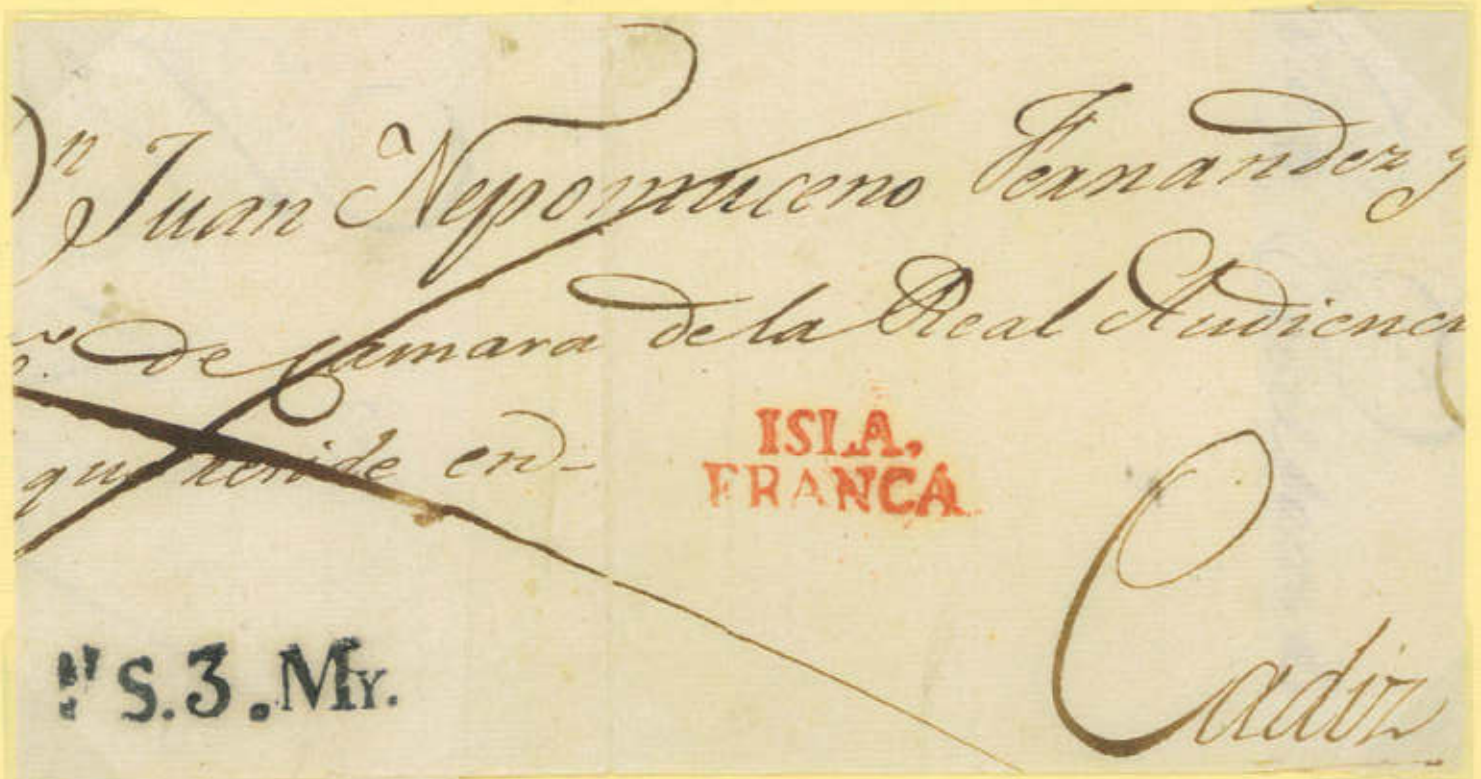 Dn Juan Nepomuceno Fernandez y
de Camara de la Real Audienci
que reside en-
ISLA,
FRANCA
Cadiz
S.3.MY.